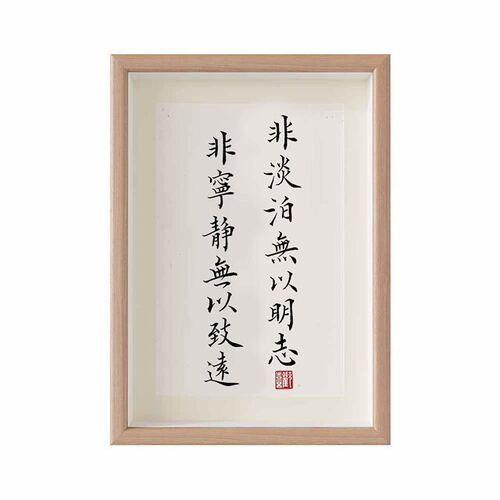 非淡泊無以明志
非寧靜無以致遠